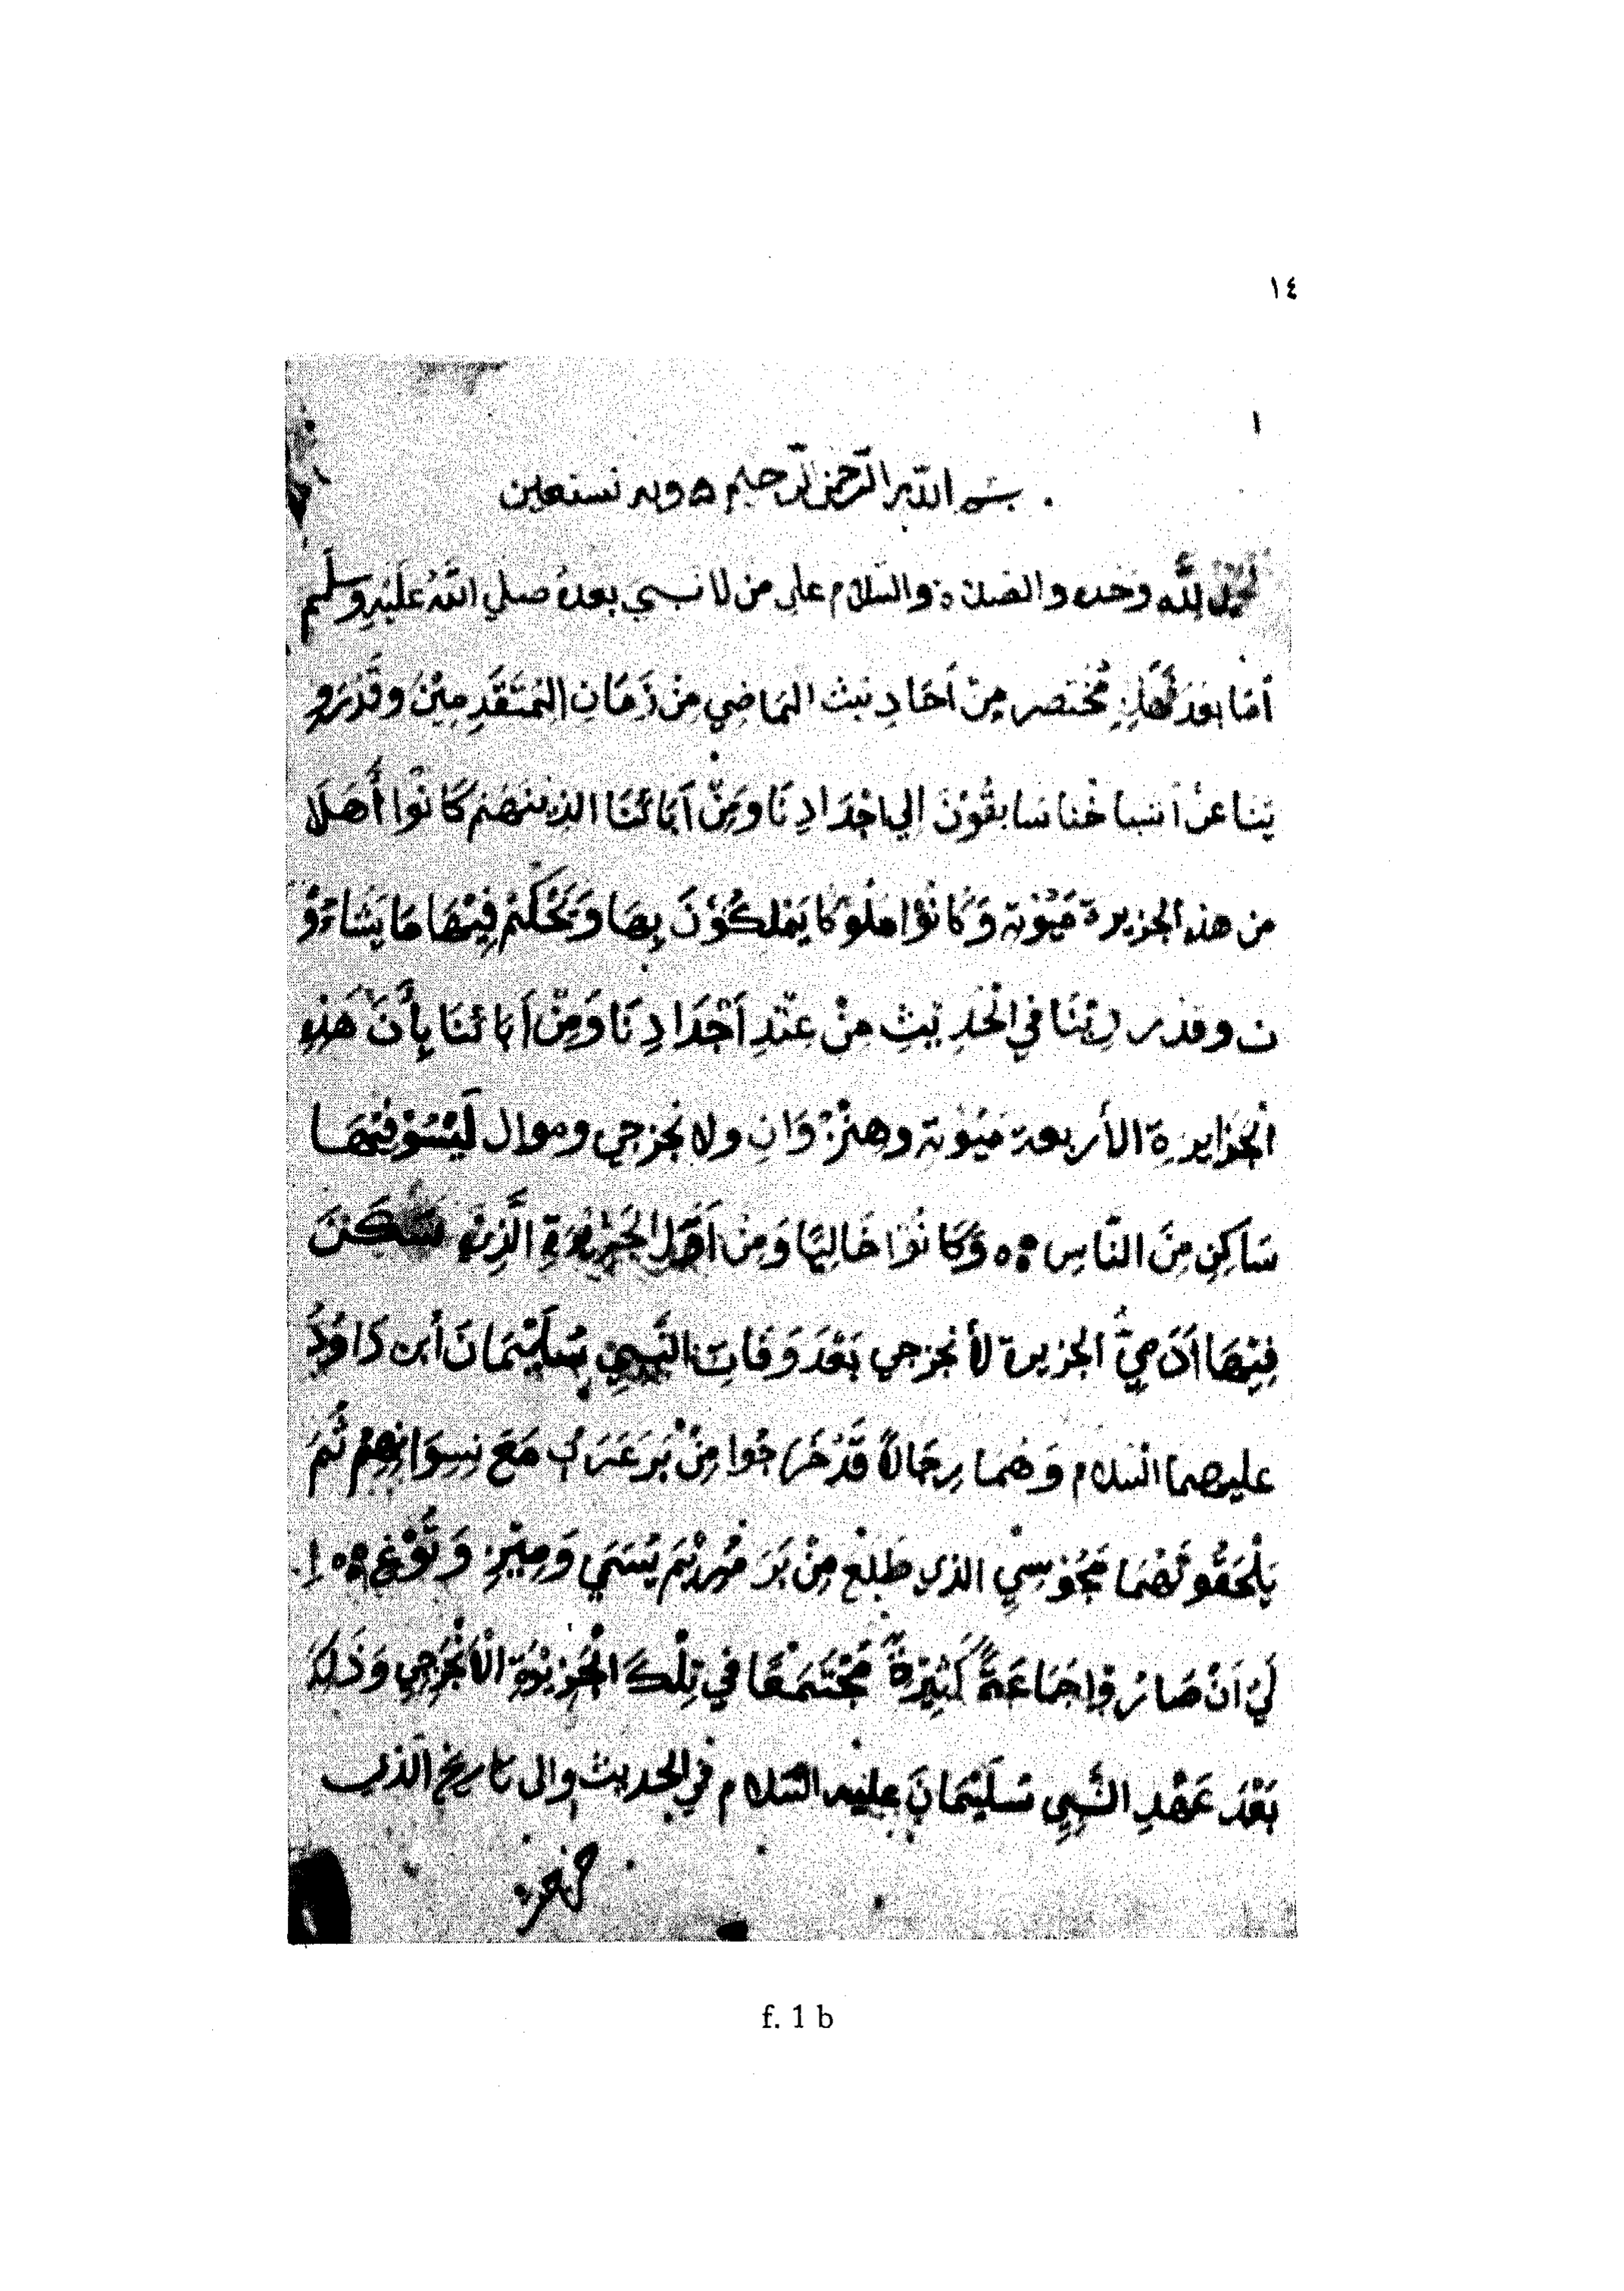 ١٤
١
بسم الله الرحمن الرحيم ه وبه نستعين
الحمد لله وحده والصلاة والسلام على من لا نبي بعده صلي الله عليه وسلم
أَمّا بعد فهَذِهِ مُختصر مِنْ أَحَادِيث الماضِي مِنْ زَمَانِ المُتَقَدِّمِيْنَ وقَدْ رَوِ
يَنا عَنْ أشياخنا سَابِقُوْنَ الي اجْدَادِنَا وَمِنْ آبَائنَا الذِيْنَهُمْ كَانُوا أَهْلَا
من هذه الجزيرة مَيُوْتَة وَكَانُوْا مُلُوْكًا يَمْلكُوْنَ بِهَا وَيَحْكُمْ فِيْهَا مَا يَشَاءُوْ
ن وقد رَوِيْنَا في الْحَدِيْثِ مِنْ عِنْدِ أَجْدَادِنَا وَمِنْ آبَائنَا بِأَنَّ هَذِهِ
الْجَزايرة الأربعة مَيُوْتَة وهِنْزُوَانِ ولانجزجي وموالِ لَيْسُوْ فِيْهَا
سَاكِن مِنَ النَّاسِ ه ه وَكَانُوْا خَالِيًا وَمِنْ أَوَّلِ الْجَزِيْرَةِ الَّذِي سَكَنَ
فِيْهَا آدَمِيُّ الجزيرة لأنجزجي بَعْدَ وَفَاتِ النَّبِيِّ سُلَيْمَانَ أبن دَاوُدُ
عليهما السلام وَهُمَا رِجَالاً قَدْ خَرَاجُوا مِنْ بَرَ عَرَب مَعَ نِسِوَانِهِمْ ثُمَ
يَلْحَقُوْنَهُمَا مَجُوْسِي الذي طَلِعَ مِنْ بَرَ مُهرِيْمَ يُسَمَي وَمِيْزِ وَتُوْغِ ه ه إِ
لَيْ أَنْ صَارُوا جَمَاعَةً كَثِيْرَةً مُجْتَمَعًا فِي تِلْكَ الْجَزِيْرَةِ الْأَنْجَزِجِي وَذَلِكَ
بَعْدَ عَهْدِ النَّبِيِ سُلَيْمَانَ عليْه السَّلَام في الحديث والى تاريخ الَّذي
f. 1 b